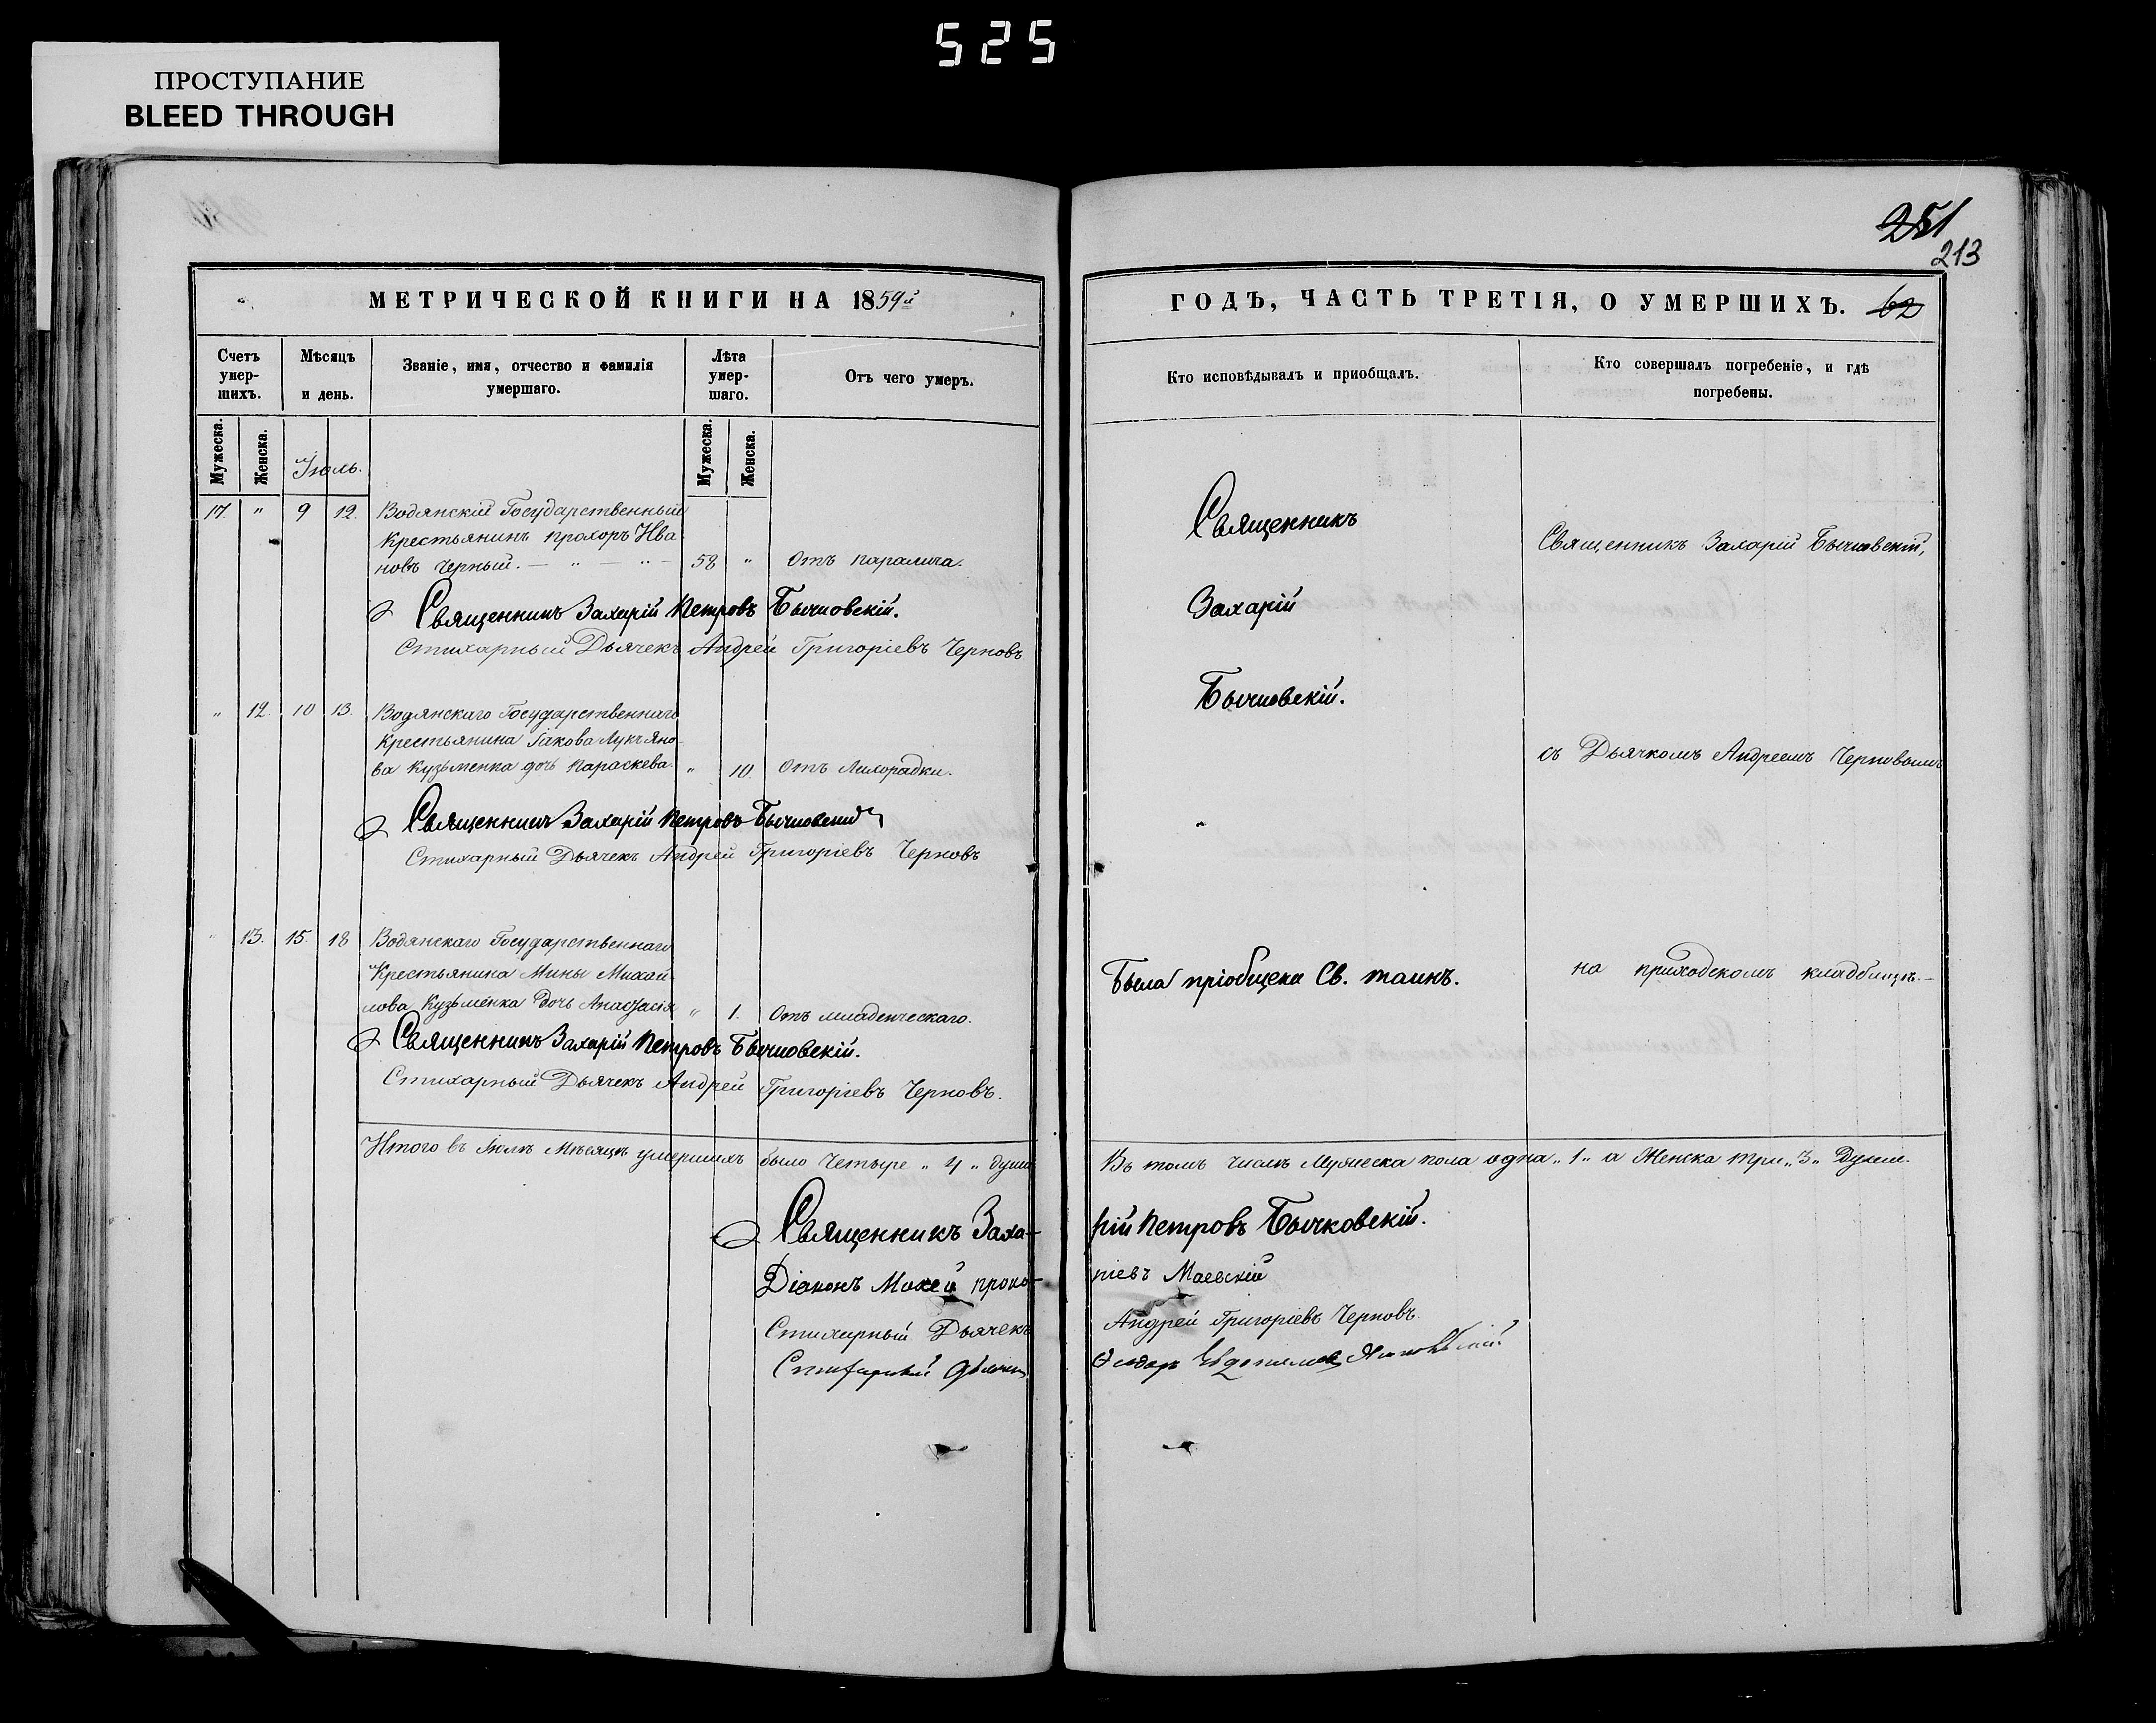 525
ПРОСТУПАНИЕ
BLEED THROUGH
251
213
МЕТРИЧЕСКОЙ КНИГИ НА 1859й
ГОДЪ, ЧАСТЬ ТРЕТІЯ, О УМЕРШИХЪ. 62
Счетъ умер-шихъ.
Мѣсяцъ и день.
Званіе, имя, отчество и фамилія умершаго.
Лѣта умер-шаго.
Отъ чего умеръ.
Кто исповѣдывалъ и приобщалъ.
Кто совершалъ погребеніе, и гдѣ погребены.
Мужеска. Женска. Іюль. Мужеска. Женска.
17. " 9 12. Водянскій Государственный
Крестьянинъ Прохоръ Ива
новъ Черный. — " — " — 58 " Отъ паралича.
Священникъ Захарій Петровъ Бычковскій.
Стихарный Дьячекъ Андрей Григоріевъ Черновъ
" 12. 10 13. Водянскаго Государственнаго
Крестьянина Іакова Лукъяно-
ва Кузьменка дочь Параскева. " 10 Отъ Лихорадки.
Священникъ Захарій Петровъ Бычковскій
Стихарный Дьячекъ Андрей Григоріевъ Черновъ
" 13. 15. 18 Водянскаго Государственнаго
Крестьянина Мины Михай-
лова Кузьменка дочь Анастасія " 1. Отъ младенческаго.
Священникъ Захарій Петровъ Бычковскій.
Стихарный Дьячекъ Андрей Григоріевъ Черновъ.
Итого въ Іюлѣ Мѣсяцѣ умершихъ было Четыре " 4 " души
Священникъ Заха-
Діаконъ Мокей Проко-
Стихарный Дьячекъ
Стихарный Дьячекъ
Священникъ
Захарій
Бычковскій.
Была пріобщена Св. таинъ.
Священникъ Захарій Бычковскій,
съ Дьячкомъ Андреемъ Черновымъ
на приходскомъ кладбищѣ.—
Въ томъ числѣ Мужеска пола одна "1" а Женска три "3" Души.
рій Петровъ Бычковскій.
піевъ Маевскій
Андрей Григоріевъ Черновъ.
Ѳеодоръ